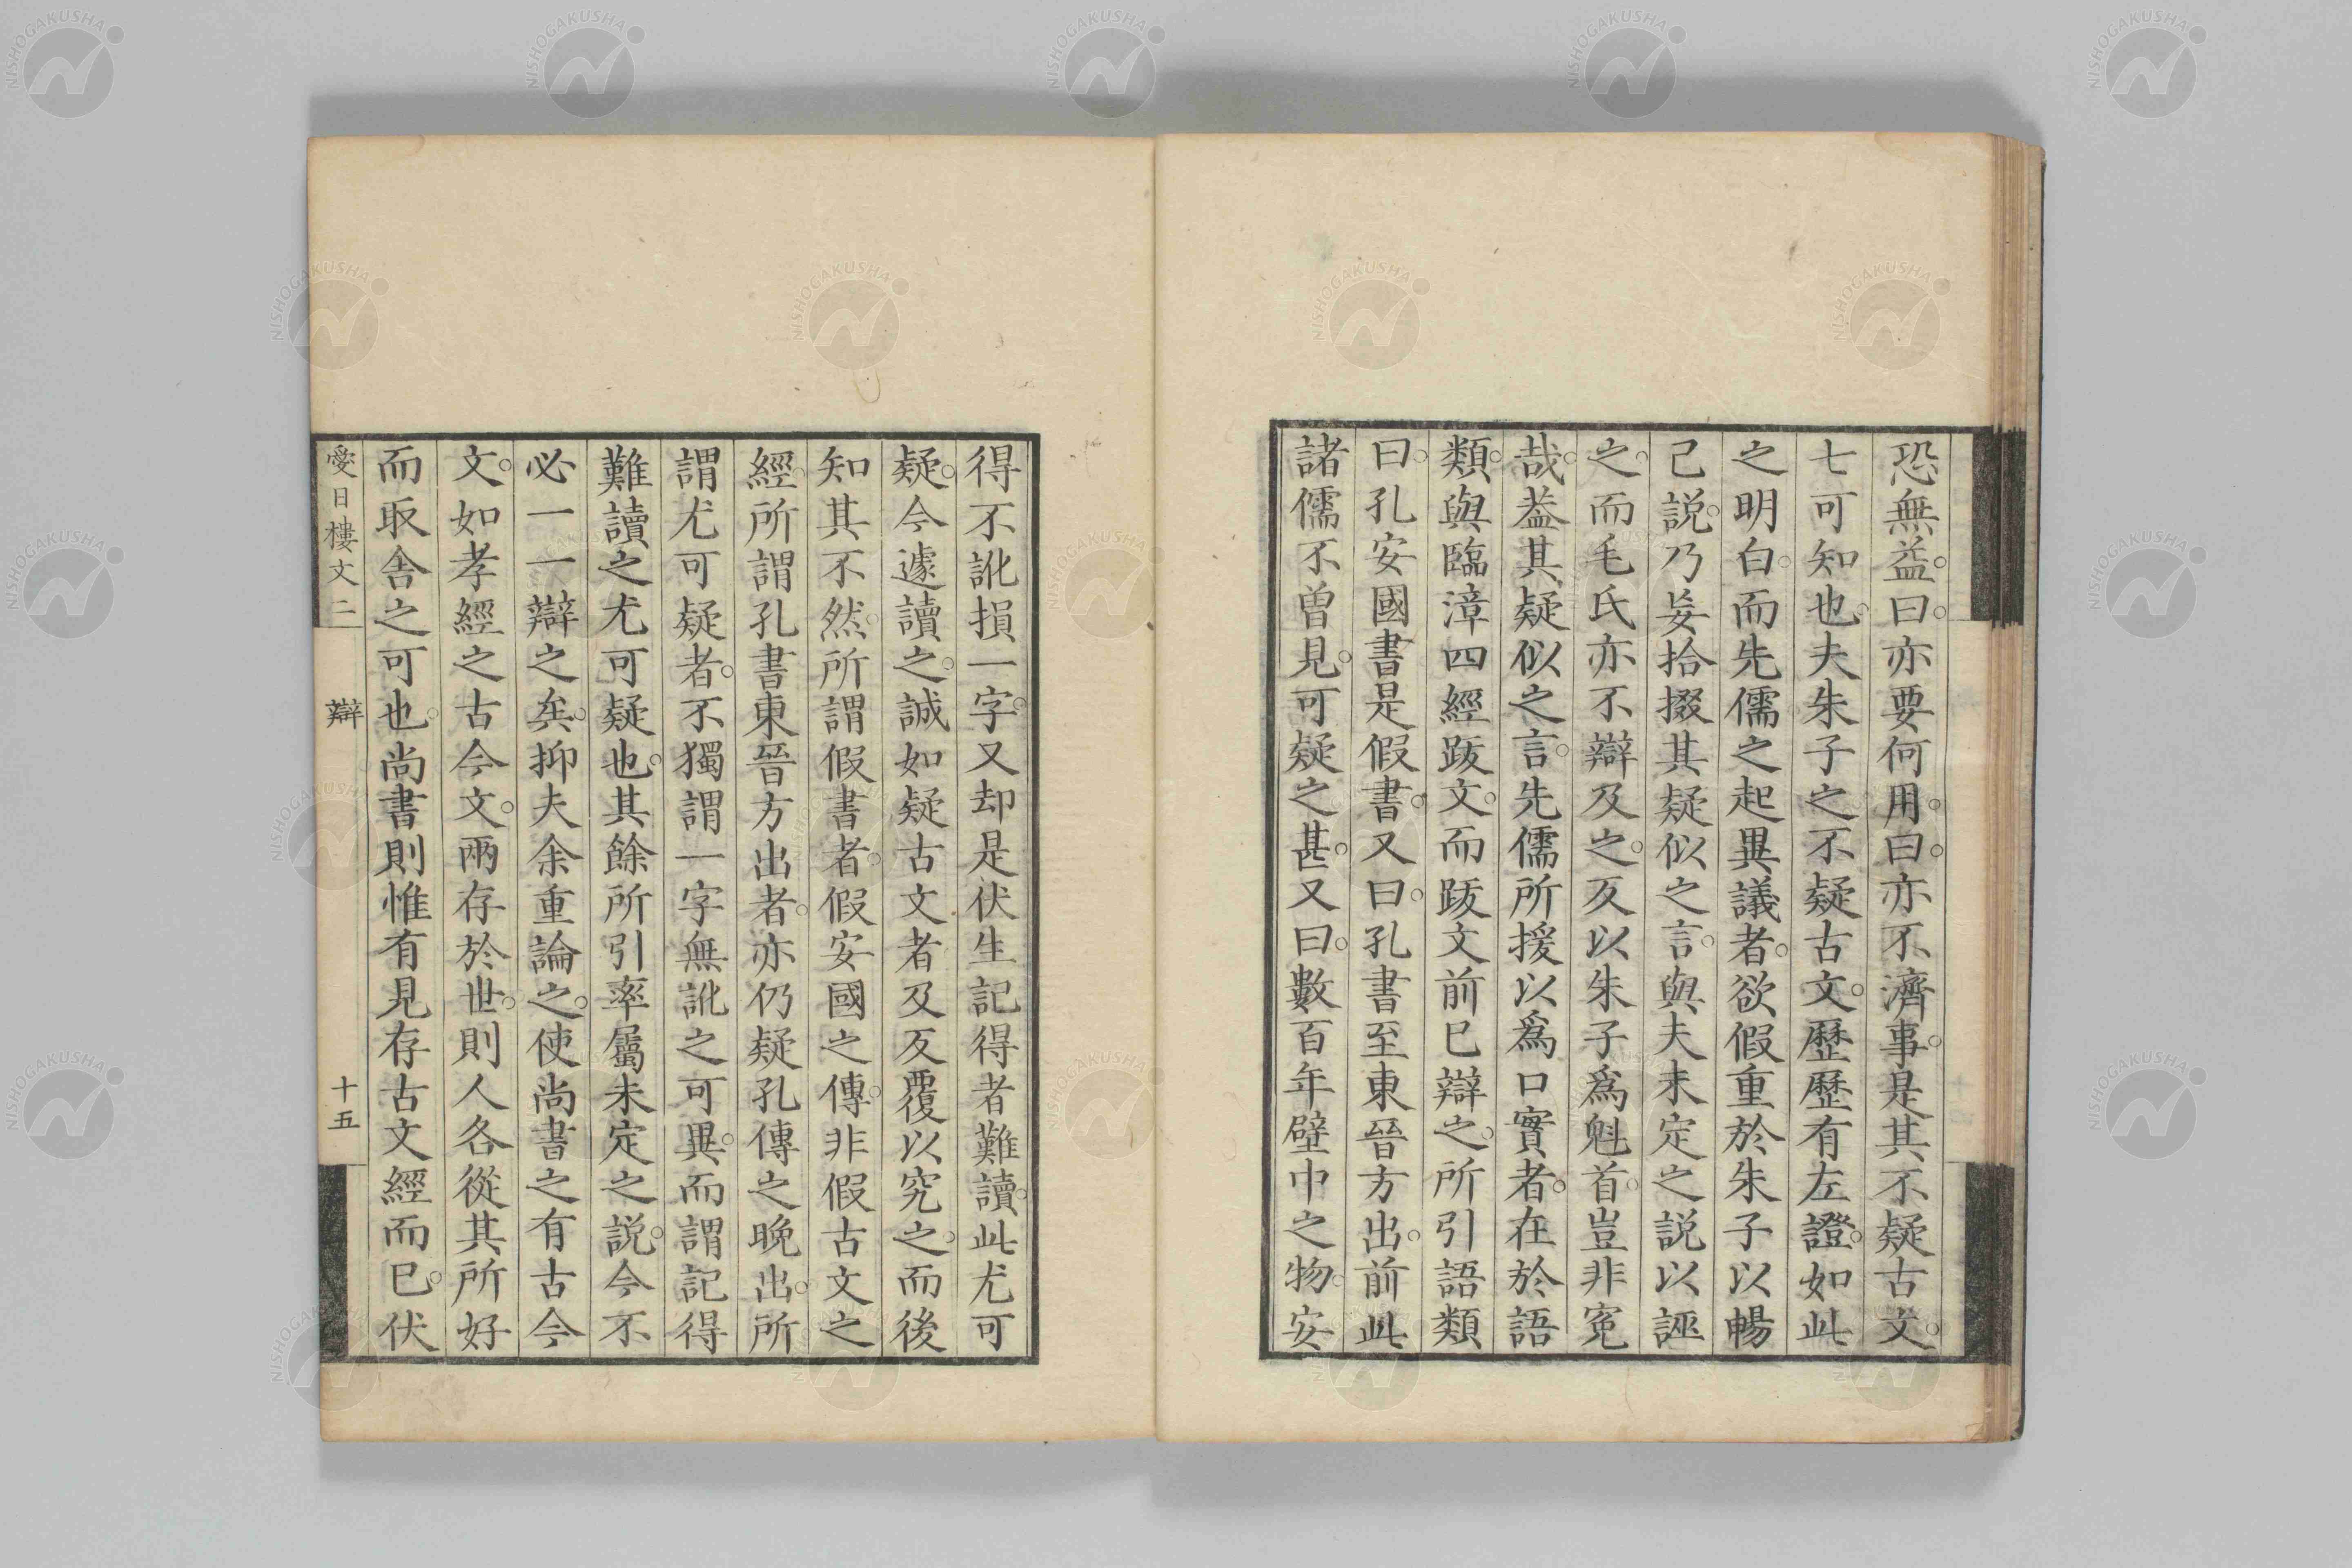 恐無益。曰。亦要何用。曰。亦不濟事。是其不疑古文。
七可知也。夫朱子之不疑古文。歷歷有左證。如此
之明白。而先儒之起異議者。欲假重於朱子以暢
己説。乃妄拾掇其疑似之言。與夫未定之説以誣
之。而毛氏亦不辯及之。反以朱子爲魁首。豈非寃
哉。葢其疑似之言。先儒所援以爲口實者。在於語
類。與臨漳四經跋文。而跋文前已辯之。所引語類
曰。孔安國書是假書。又曰。孔書至東晉方出。前此
諸儒不曾見。可疑之甚。又曰。數百年壁中之物。安
得不訛損一字。又却是伏生記得者難讀。此尤可
疑。今遽讀之。誠如疑古文者。及反覆以究之。而後
知其不然。所謂假書者。假安國之傳。非假古文之
經。所謂孔書東晉方出者。亦仍疑孔傳之晚出。所
謂尤可疑者。不獨謂一字無訛之可異。而謂記得
難讀之尤可疑也。其餘所引率屬未定之説。今不
必一一辯之矣。抑夫余重論之。使尚書之有古今
文。如孝經之古今文。兩存於世。則人各從其所好
而取舍之可也。尚書則惟有見存古文經而已。伏
愛日樓文二 辯 十五
NISHOGAKUSHA